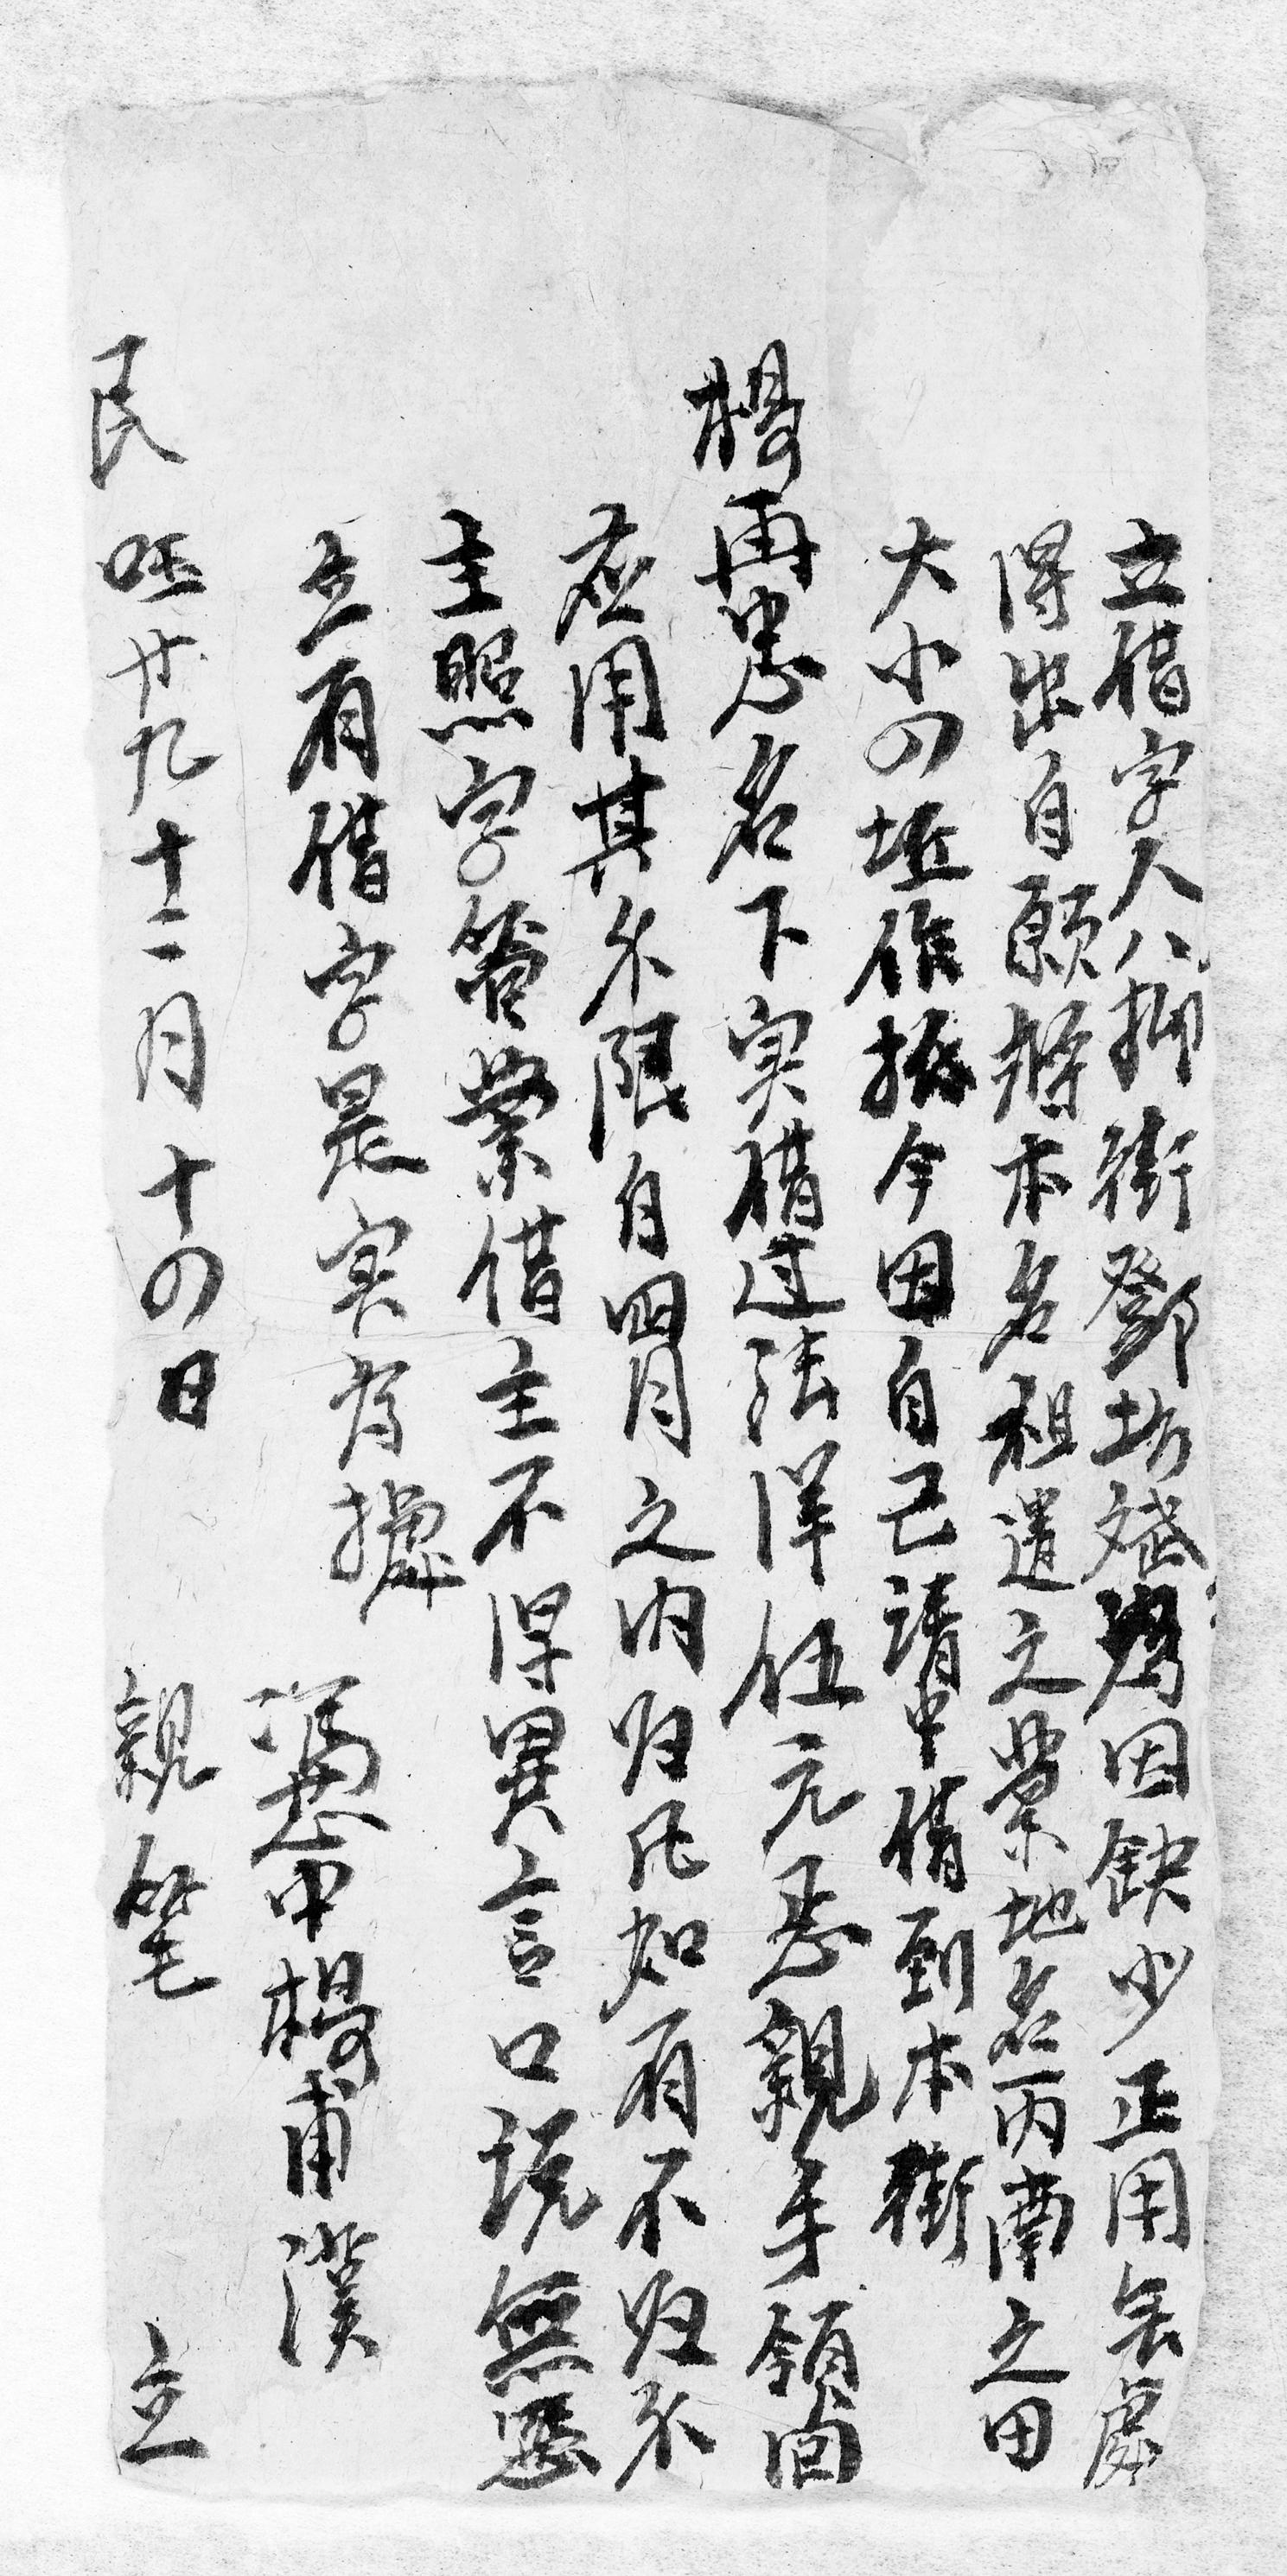 立借字人八抑街鄧坊斌為因缺少正用無處
得出自願將本名祖遺之業地名丙南之田
大小四坵作抵今因自己請中借到本街
楊再忠名下实借过法洋伍元忍親手領囬
应用其尔限自四月之内归凡如有不归尔
主照字管業借主不得異言口说無憑
立有借字是实为據
憑中楊甫漢
民囯廿九十二月十四日 親筆 立